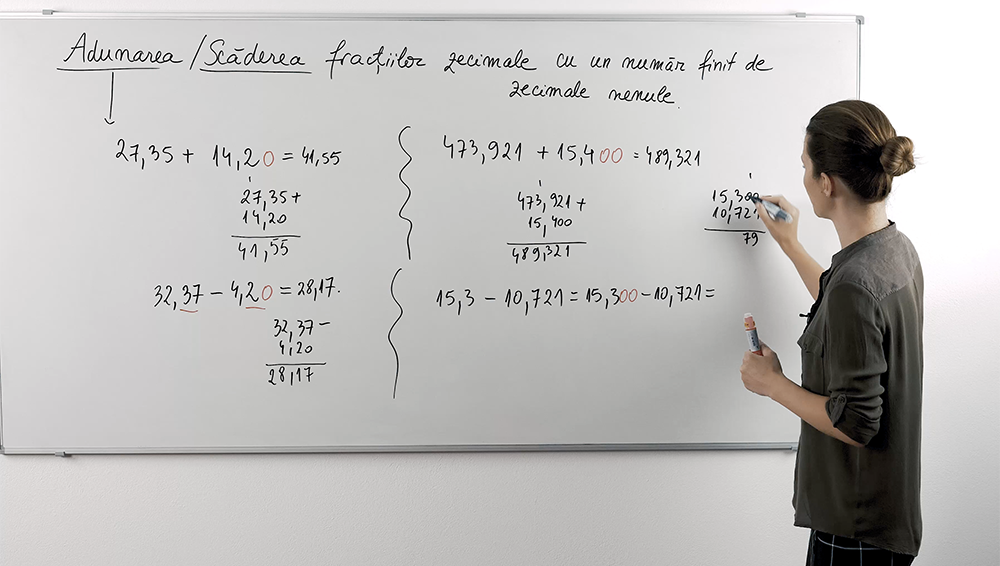 Adunarea / Scăderea fracțiilor zecimale cu un număr finit de
zecimale nenule.
27,35 + 14,20 = 41,55
27,35 +
14,20
41,55
32,37 - 4,20 = 28,17.
32,37 -
4,20
28,17
473,921 + 15,400 = 489,321
1
473,921 +
15,400
489,321
15,3 - 10,721 = 15,300 - 10,721 =
15,300
10,721
79